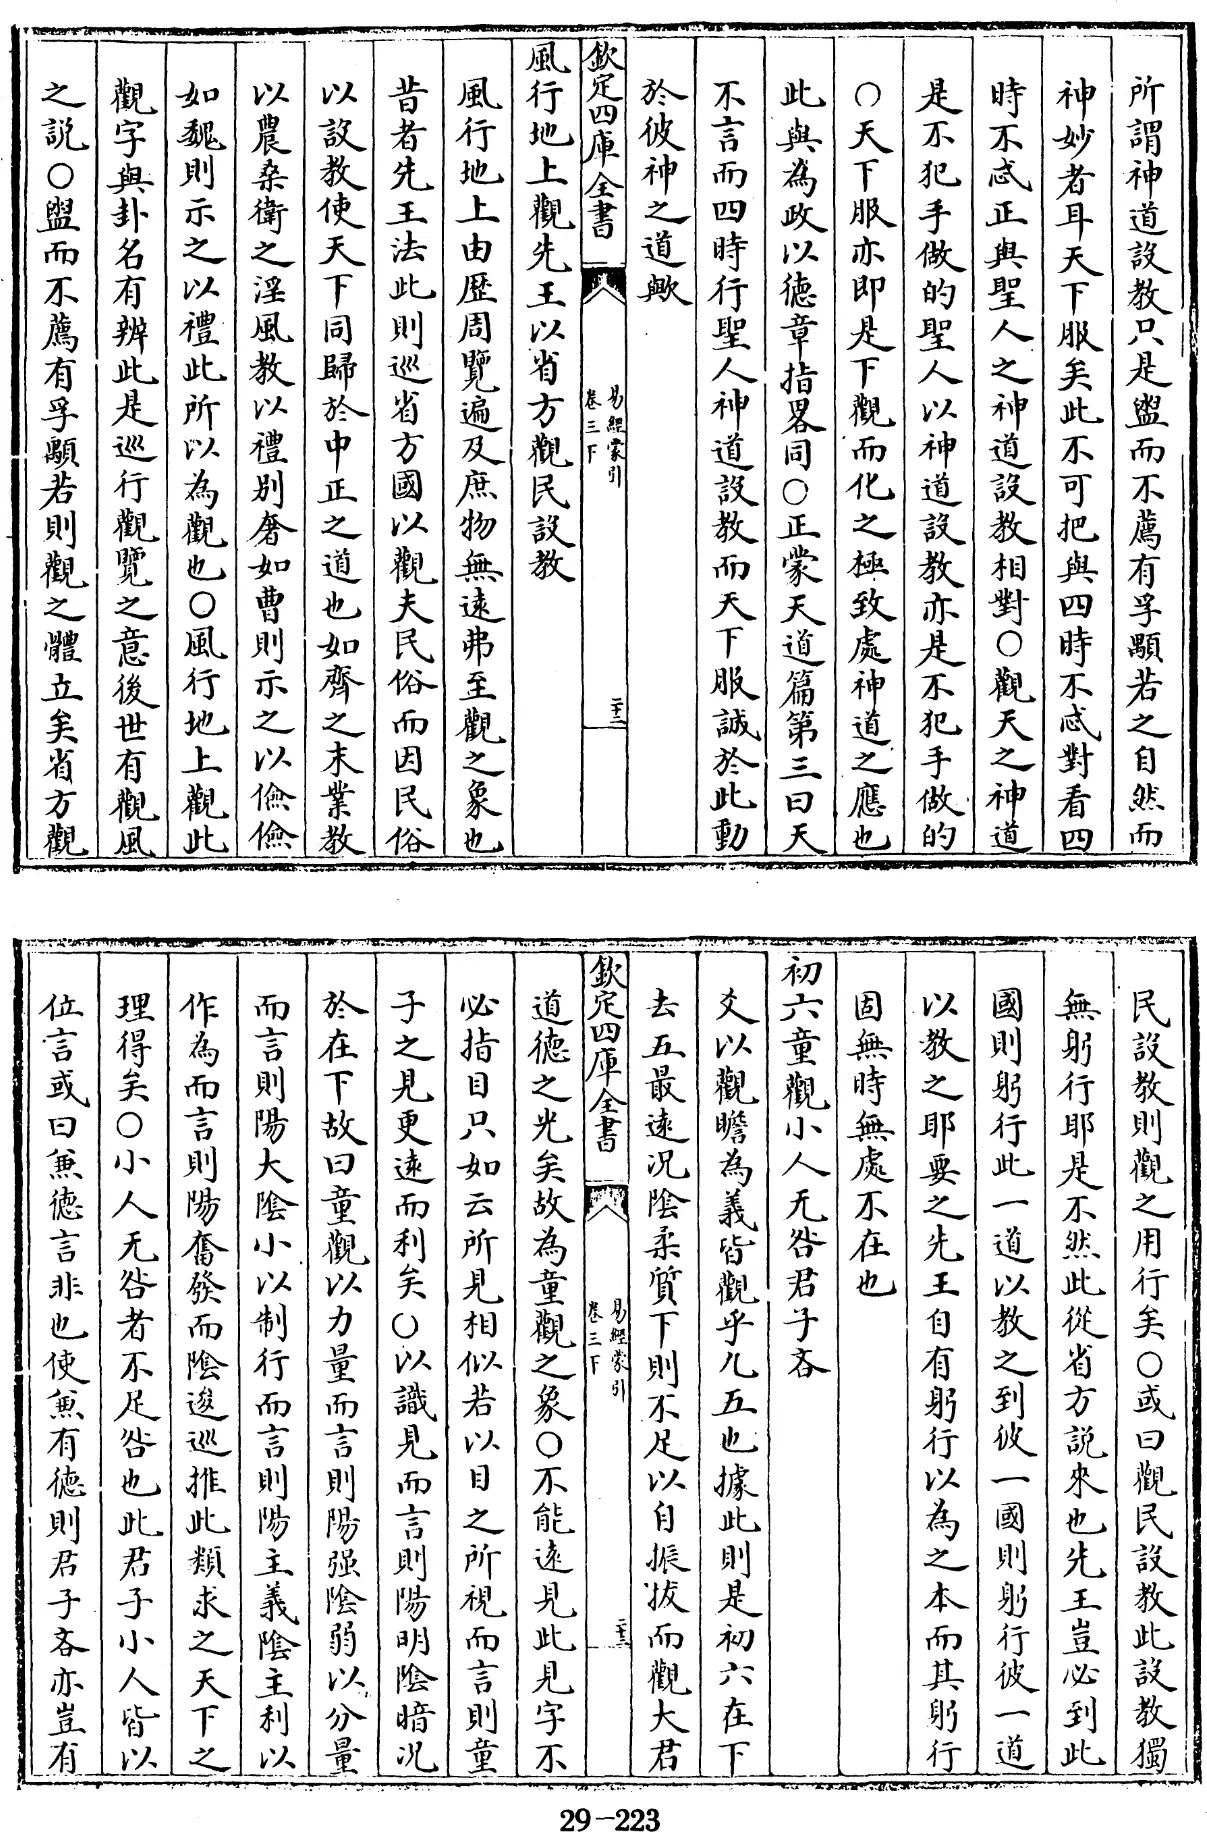 所謂神道設教只是盥而不薦有孚顒若之自然而
神妙者耳天下服矣此不可把與四時不忒對看四
時不忒正與聖人之神道設教相對〇觀天之神道
是不犯手做的聖人以神道設教亦是不犯手做的
〇天下服亦即是下觀而化之極致處神道之應也
此與為政以德章指畧同〇正蒙天道篇第三曰天
不言而四時行聖人神道設教而天下服誠於此動
於彼神之道歟
欽定四庫全書
易經蒙引
卷三下
二十二
風行地上觀先王以省方觀民設教
風行地上由歷周覽遍及庶物無遠弗至觀之象也
昔者先王法此則巡省方國以觀夫民俗而因民俗
以設教使天下同歸於中正之道也如齊之末業教
以農桑衛之淫風教以禮別奢如曹則示之以儉儉
如魏則示之以禮此所以為觀也〇風行地上觀此
觀字與卦名有辨此是巡行觀覽之意後世有觀風
之説〇盥而不薦有孚顒若則觀之體立矣省方觀
民設教則觀之用行矣〇或曰觀民設教此設教獨
無躬行耶是不然此從省方説來也先王豈必到此
國則躬行此一道以教之到彼一國則躬行彼一道
以教之耶要之先王自有躬行以為之本而其躬行
固無時無處不在也
初六童觀小人无咎君子吝
爻以觀瞻為義皆觀乎九五也據此則是初六在下
去五最遠况陰柔質下則不足以自振拔而觀大君
欽定四庫全書
易經蒙引
卷三下
二十三
道德之光矣故為童觀之象〇不能遠見此見字不
必指目只如云所見相似若以目之所視而言則童
子之見更遠而利矣〇以識見而言則陽明陰暗况
於在下故曰童觀以力量而言則陽强陰弱以分量
而言則陽大陰小以制行而言則陽主義陰主利以
作為而言則陽奮發而陰逡巡推此類求之天下之
理得矣〇小人无咎者不足咎也此君子小人皆以
位言或曰兼德言非也使兼有德則君子吝亦豈有
29-223